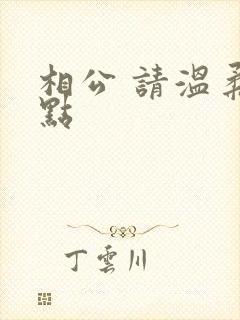 相公 請溫柔
點
丁雲川